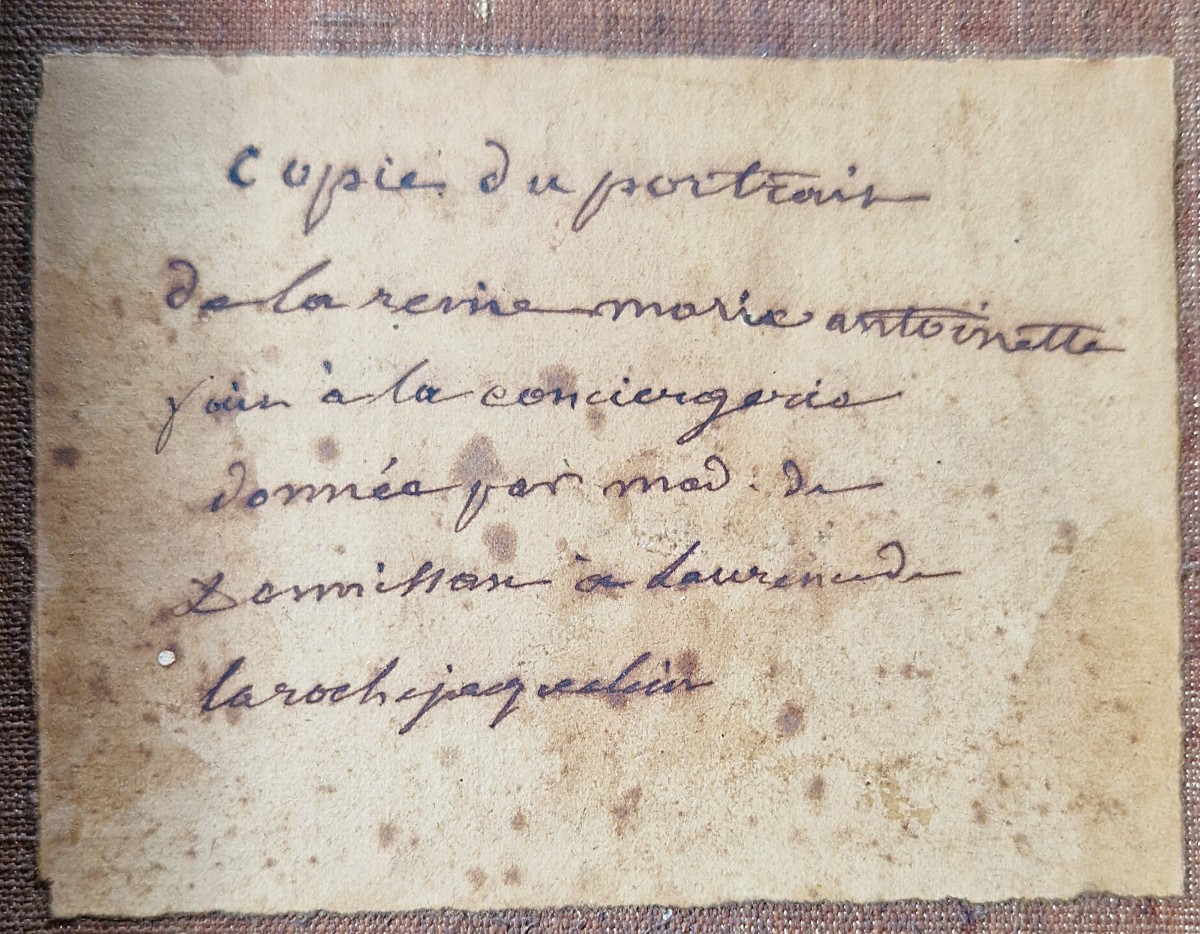 copie du portrait
de la reine marie antoinette
fait à la conciergerie
donnée par mad. de
Lennissan à Laurence de
larochejaquelein